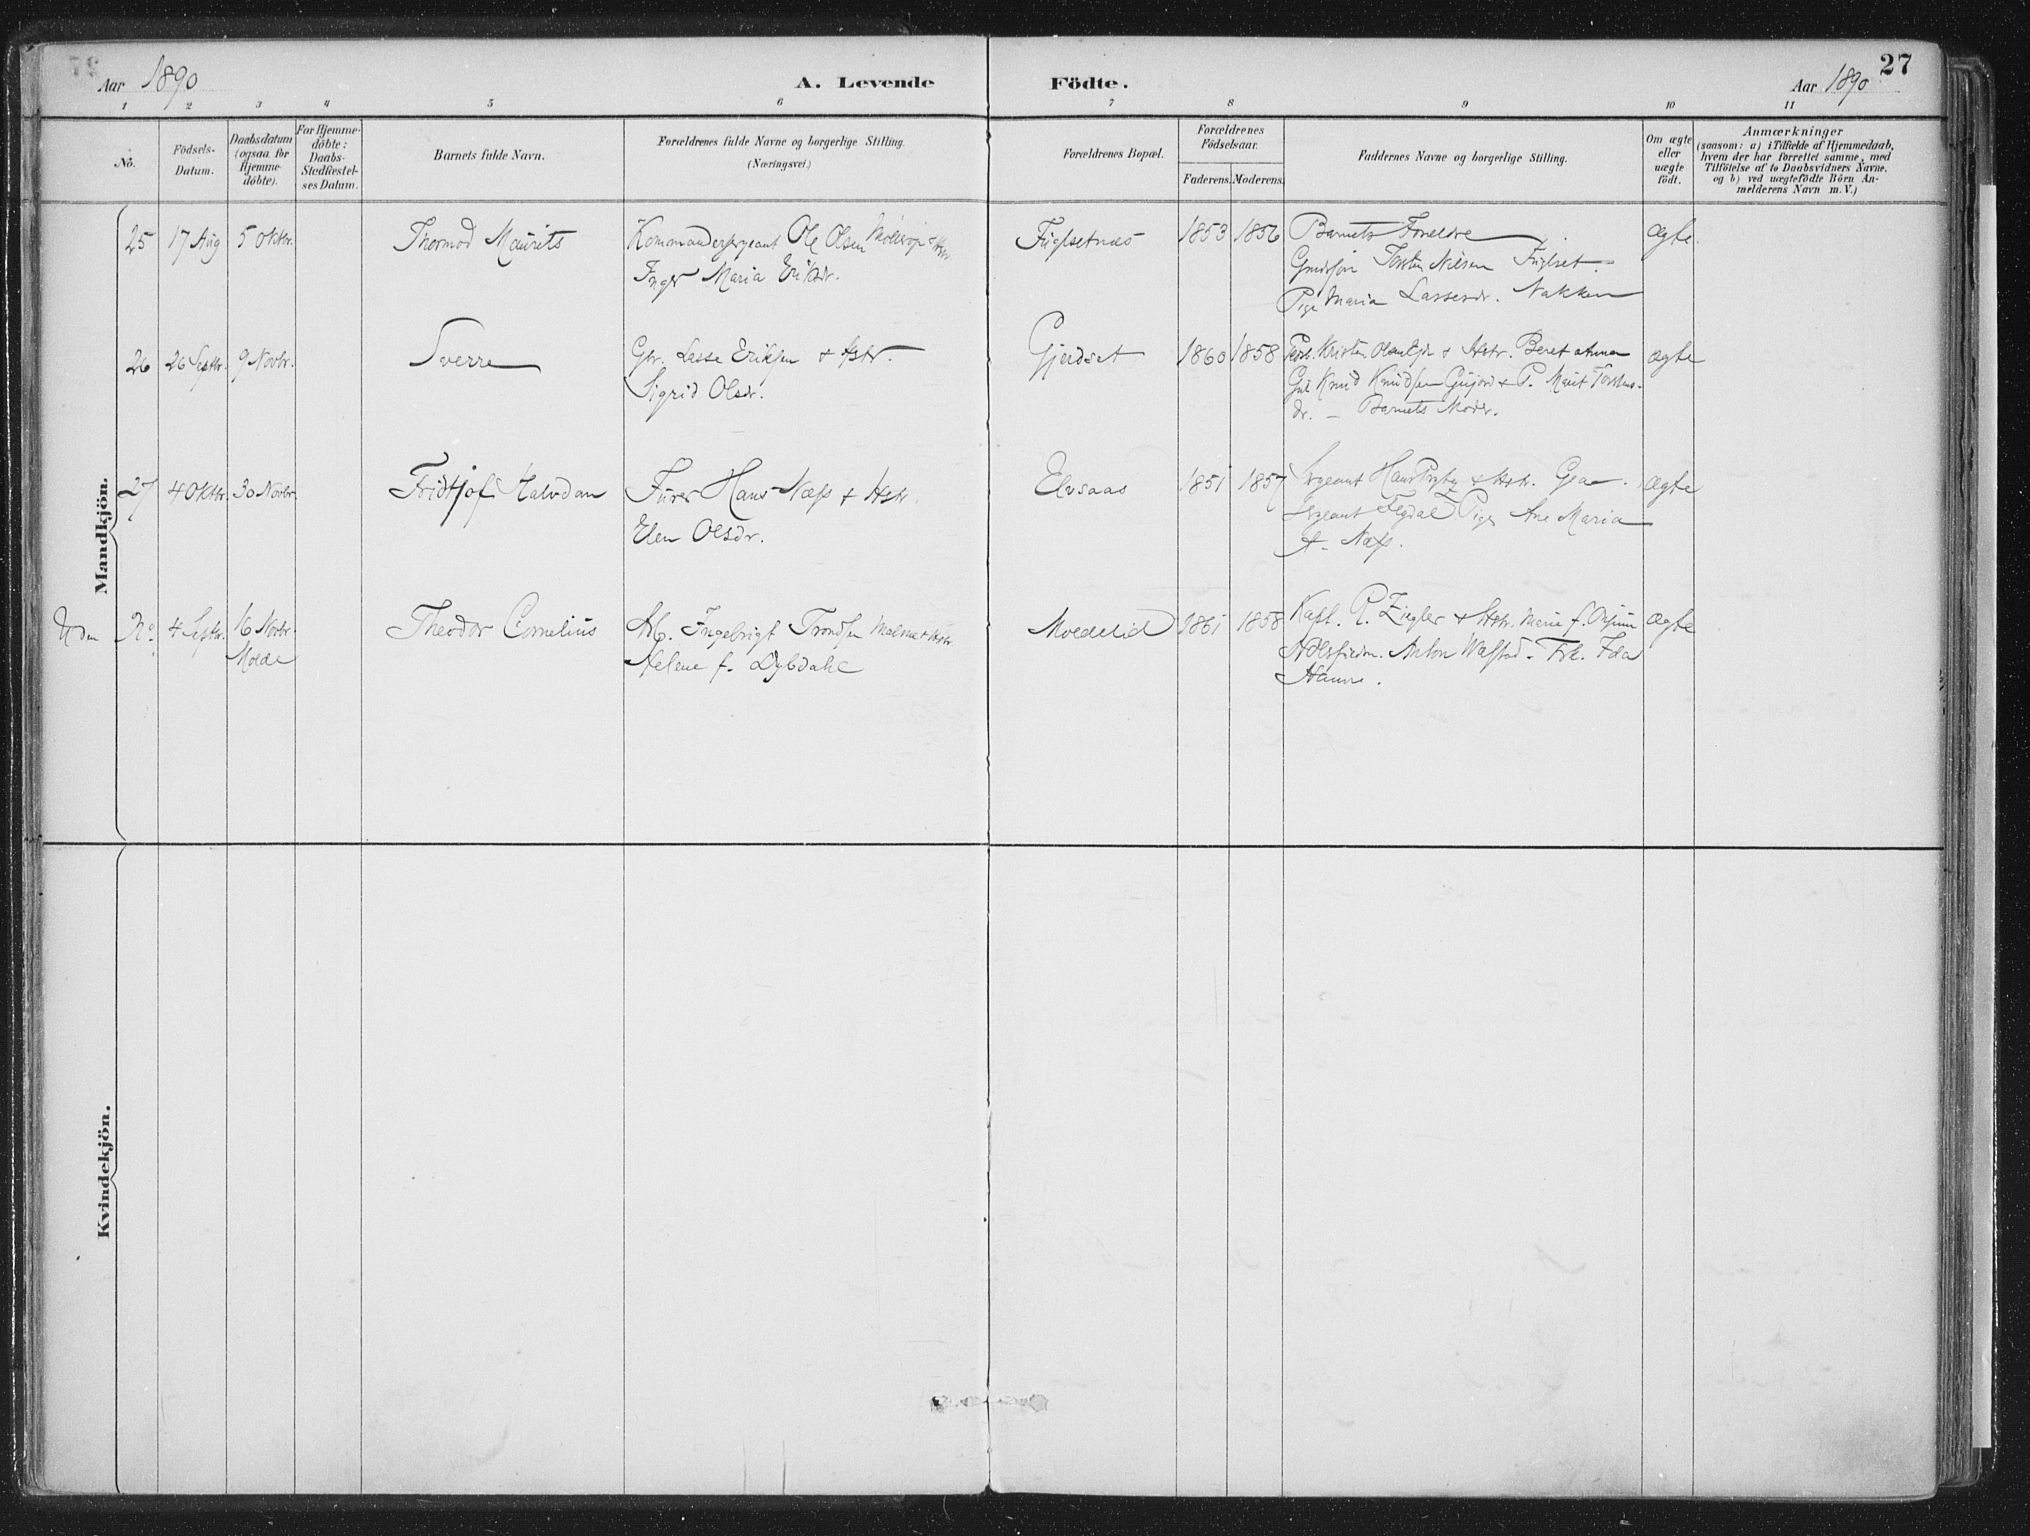 Aar 1890 A. Levende Födte. Aar 1890 27
1 2 3 4 5 6 7 8 9 10 11
No.
Födsels-Datum.
Daabsdatum (ogsaa for Hjemmedöbte).
For Hjemmedöbte: Daabs-Stadfæstelses Datum.
Barnets fulde Navn.
Forældrenes fulde Navne og borgerlige Stilling. (Næringsvei.)
Forældrenes Bopæl.
Forældrenes Födselsaar.
Faderens. Moderens.
Faddernes Navne og borgerlige Stilling.
Om ægte eller uægte födt.
Anmærkninger
(saasom: a) i Tilfælde af Hjemmedaab,
hvem der har forrettet samme, med
Tilföielse af to Daabsvidners Navne,
og b) ved uægtefödte Börn Anmelderens Navn m. V.)
Mandkjön.
25 17 Aug 5 Oktbr. Thormod Maurits Kommandersergeant Ole Olsen Fuglsetnæs 1853 1856 Barnets Forældre ægte.
Inger Maria Eriksdr. Torsten Nilsen Fuglset.
Pige Maria Lassesdr. Nakken
26 26 Septbr. 9 Novbr. Sverre Gbr. Lasse Eriksen & Hstr. Gjerdset 1860 1858 Kristen Olsen & Hstr. Beret Anna ægte
Sigrid Olsdr. Knud Knudsen & P. Marit Torstens-
dr. – Barnets Moder.
27 4 Oktbr. 30 Novbr. Fridtjof Halvdan Furer Hans Næss & Hstr. Elvsaas 1851 1857 Sergeant Hans & Hstr. ægte
Elen Olsdr. Sergeant Pige Ane Maria
Næss.
Uden No. 4 Septbr. 16 Novbr. Theodor Cornelius Ingebrigt Trondsen Malme & Hstr Moldelid 1861 1858 Kapt. P. Ziegler & Hstr. Marie f. ægte
Molde Helene f. Dybdahl Anton Frk. Ida
Hanne.
Kvindekjön.